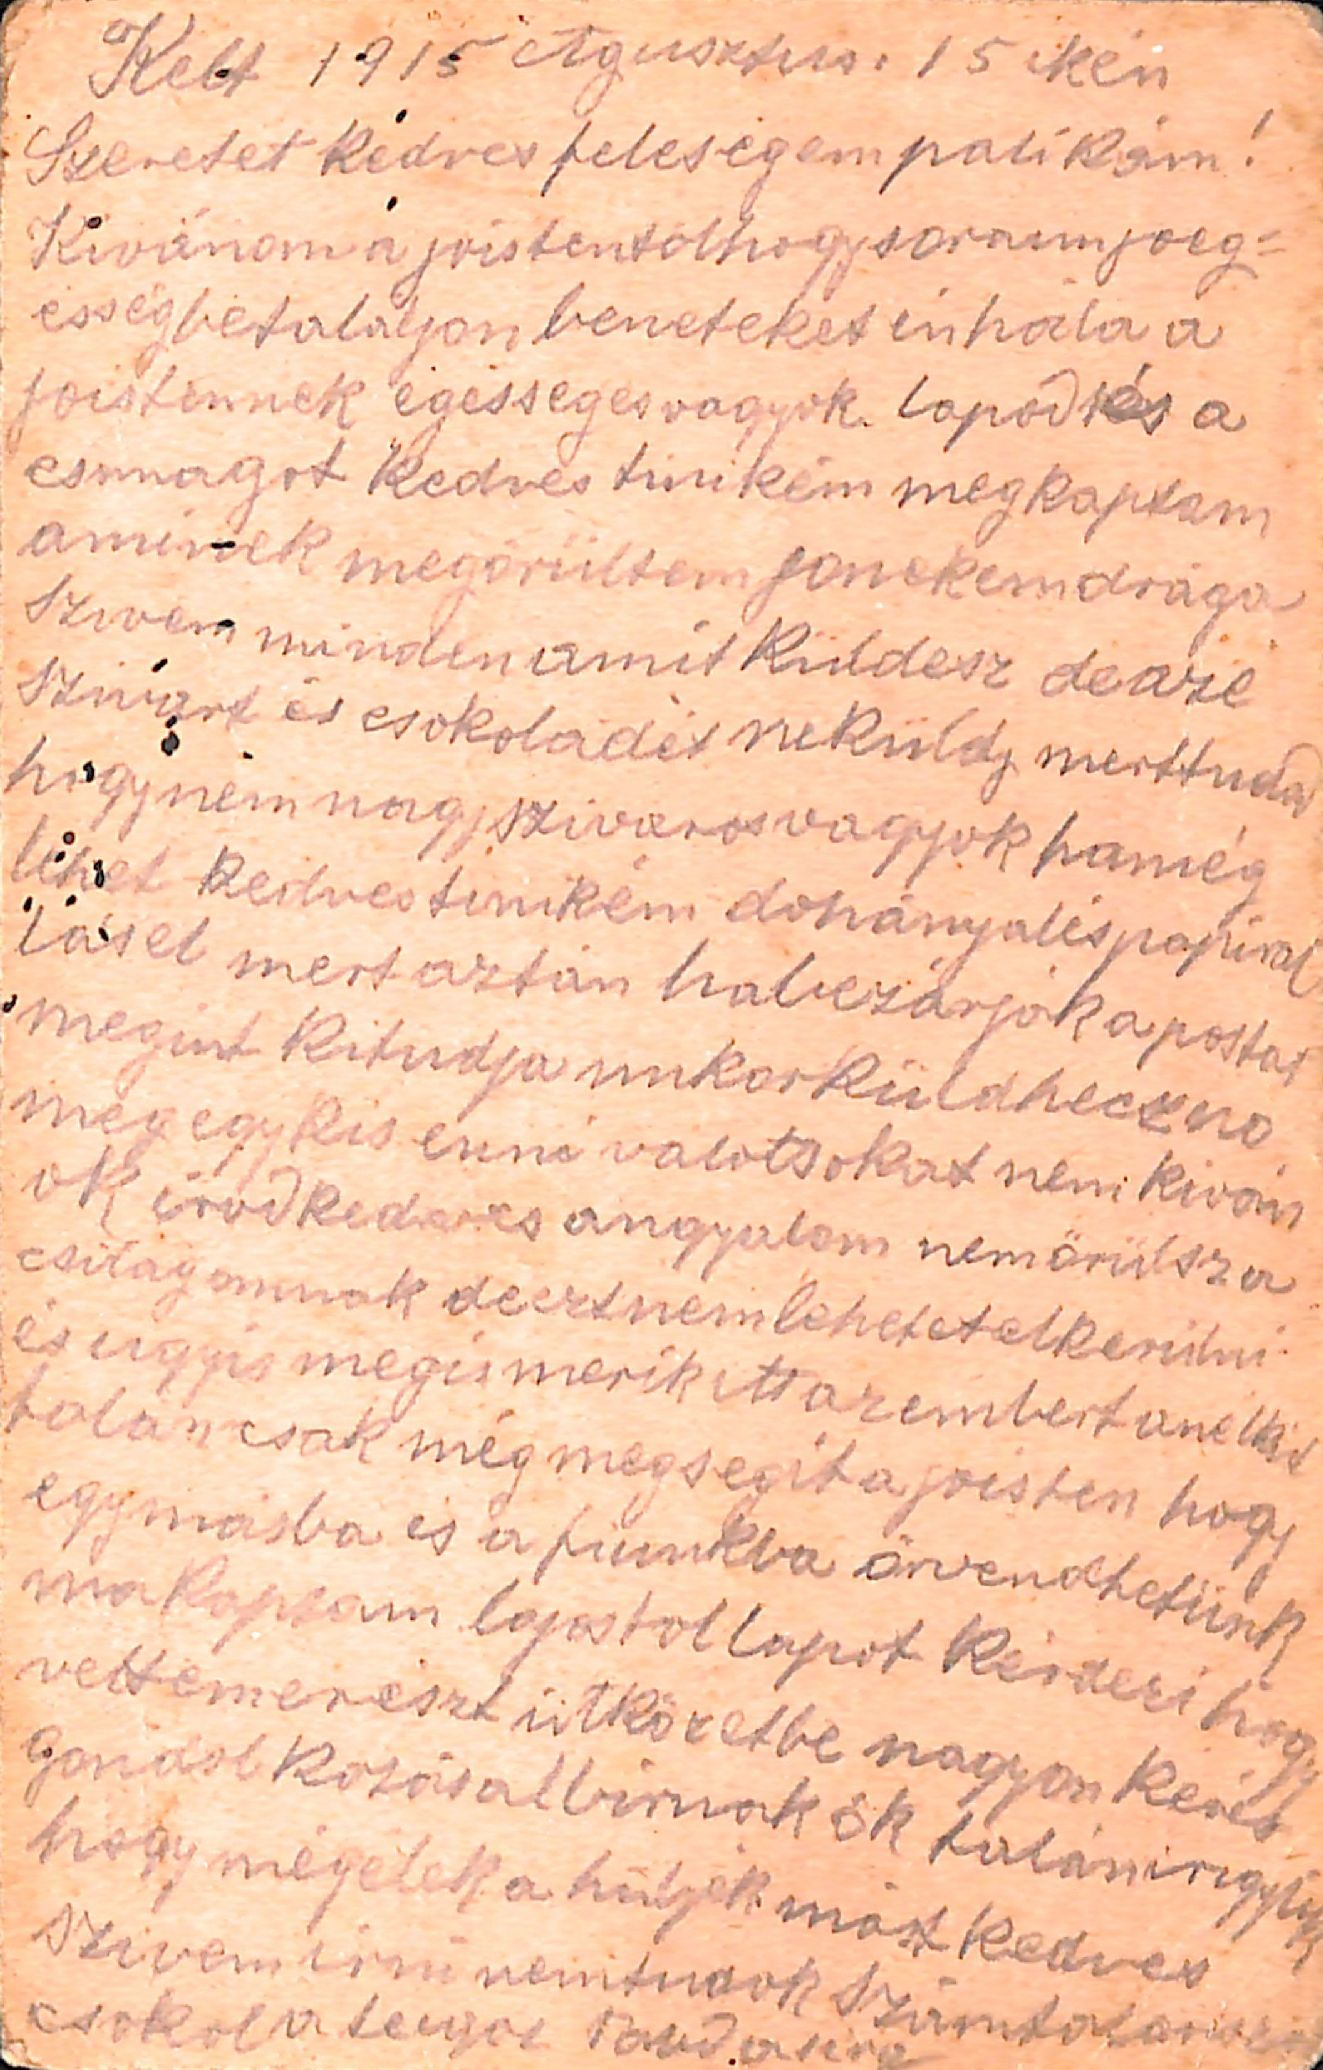 Kelt 1915 Agusztus. 15 ikén
Szeretet kedves feleségem palikám!
Kivánom a joistentölhogy soraim joeg=
ességbetalaljon beneteket énhála a
joistennek egésségesvagyok. lapod és a
csomagot kedves tinikém megkaptam
aminek megörültem jonekemdrága
szivem mindenamit küldesz deazé
szivart és csokoládét neküldj merttudod
hogynem nagy szivarosvagyok hamég
lehet kedvestinikém dohányalés papiral
lásel mert aztán habezárják a postat
megint kitudja mikor küldhecz no
meg egy kis enni valot sokat nem kiván
ok irod kedves angyalom nemörülsz a
csilagomnak deeztnemlehetetelkerülni
és ugyis megismerik itt azembert anelkül
talán csak még megsegit a joisten hogy
egymásba és a fiunkba örvendhetünk
makaptam lajostol lapot kérdezi hogy
vettemerészt ütközetbe nagyon kevés
gondol kozásalbirnak ök talán irigylik
hogy mégélek a hüljék most kedves
szivem irni nemtudok számtalanszor
csokol a leugol